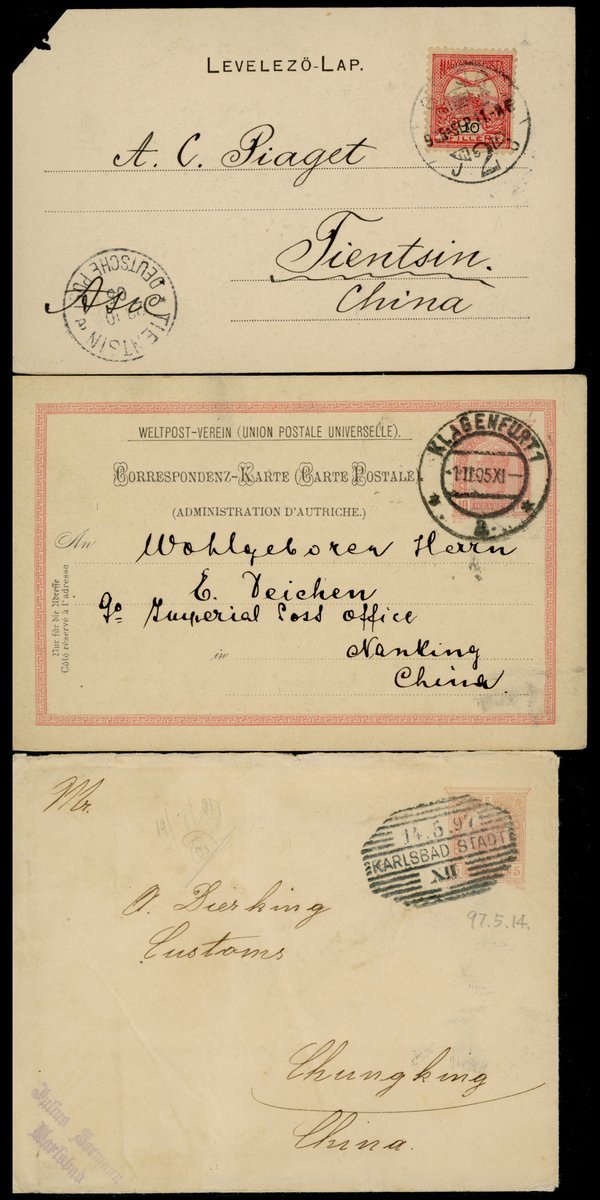 LEVELEZŐ-LAP.
MAGYAR KIR. POSTA
10
FILLÉR
A. C. Piaget
Tientsin.
China
TIENTSIN
DEUTSCHE POST
WELTPOST-VEREIN (UNION POSTALE UNIVERSELLE).
CORRESPONDENZ-KARTE (CARTE POSTALE).
(ADMINISTRATION D'AUTRICHE.)
KLAGENFURT 1
1·II·05·XI
a
An Wohlgeboren Herrn
E. Deichen
Nur für die Adresse
Côté réservé à l'adresse
c/o Imperial Post Office
in Nanking
China.
Mr.
14.5.97
KARLSBAD STADT
XII
5
97.5.14.
O. Dierking
Customs
Chungking
China.
Julius
Karlsbad